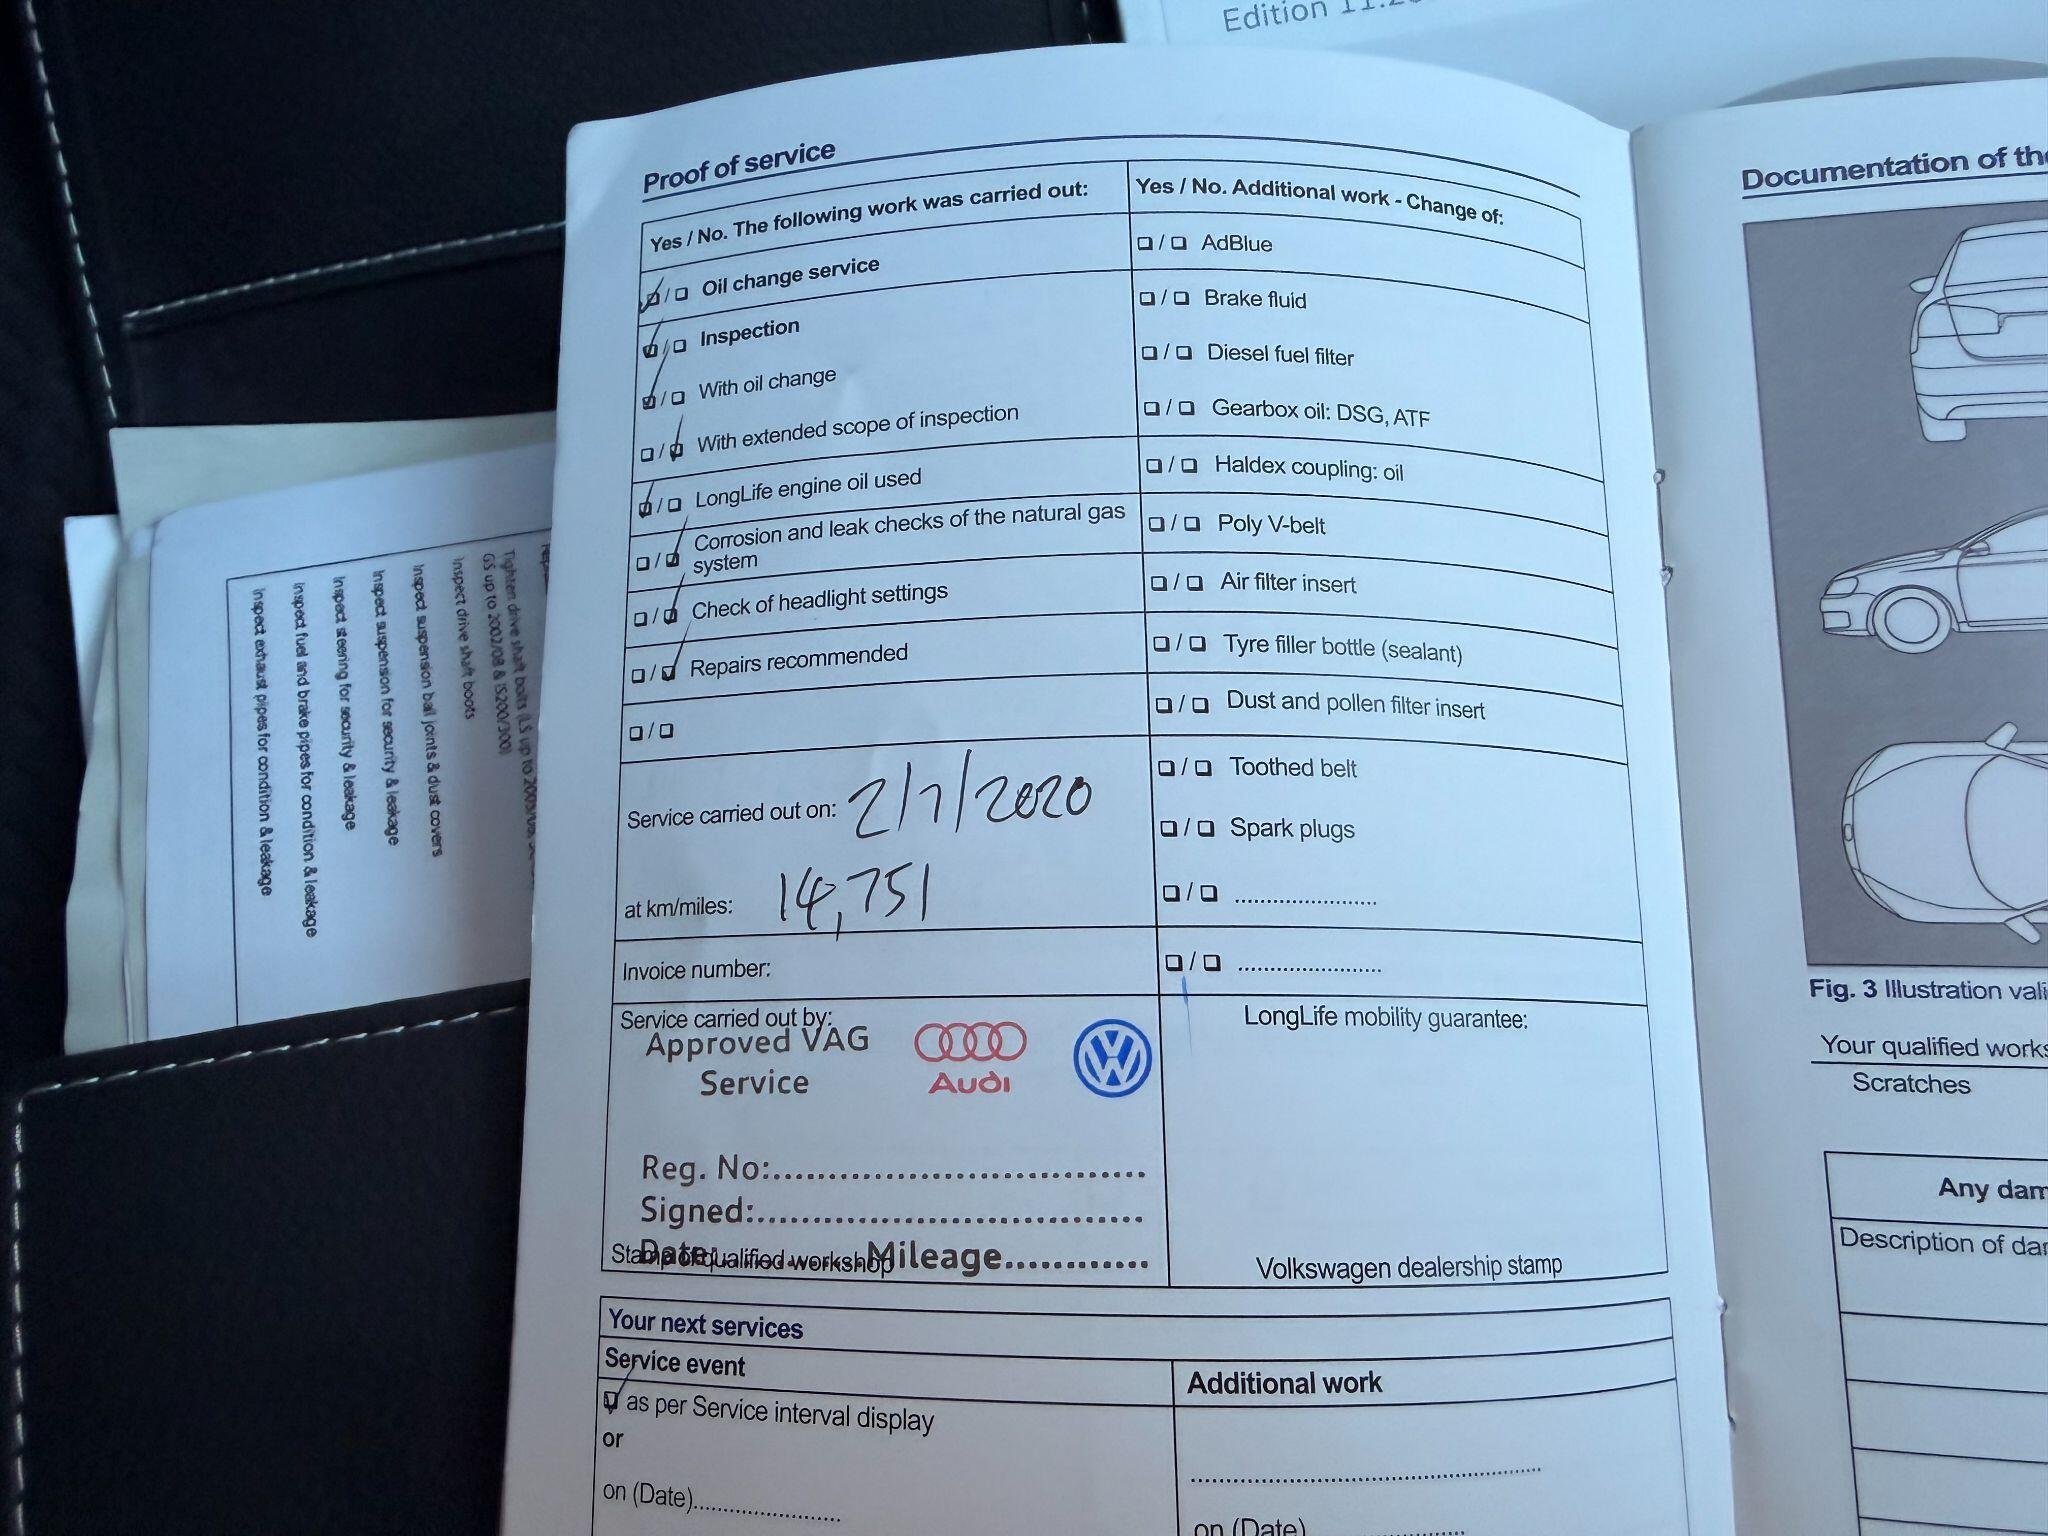 Edition 11.20
Proof of service
Yes / No. The following work was carried out:
☑ / ❑ Oil change service
☑ / ❑ Inspection
☑ / ❑ With oil change
❑ / ☑ With extended scope of inspection
☑ / ❑ LongLife engine oil used
❑ / ☑ Corrosion and leak checks of the natural gas
system
❑ / ☑ Check of headlight settings
❑ / ☑ Repairs recommended
❑ / ❑
Service carried out on: 2/7/2020
at km/miles: 14,751
Invoice number:
Service carried out by:
Approved VAG
Service
Audi
VW
Reg. No:..............................
Signed:..............................
Date:............Mileage............
Stamp of qualified workshop
Yes / No. Additional work - Change of:
❑ / ❑ AdBlue
❑ / ❑ Brake fluid
❑ / ❑ Diesel fuel filter
❑ / ❑ Gearbox oil: DSG, ATF
❑ / ❑ Haldex coupling: oil
❑ / ❑ Poly V-belt
❑ / ❑ Air filter insert
❑ / ❑ Tyre filler bottle (sealant)
❑ / ❑ Dust and pollen filter insert
❑ / ❑ Toothed belt
❑ / ❑ Spark plugs
❑ / ❑ ........................
❑ / ❑ ........................
LongLife mobility guarantee:
Volkswagen dealership stamp
Your next services
Service event
☑ as per Service interval display
or
on (Date)........................
Additional work
............................................................
on (Date)........................
Documentation of the
Fig. 3 Illustration vali
Your qualified works
Scratches
Any dam
Description of dam
Tighten drive shaft bolts (LS up to
GS up to 2002/08 & IS200/300)
Inspect drive shaft boots
Inspect suspension ball joints & dust covers
Inspect suspension for security & leakage
Inspect steering for security & leakage
Inspect fuel and brake pipes for condition & leakage
Inspect exhaust pipes for condition & leakage